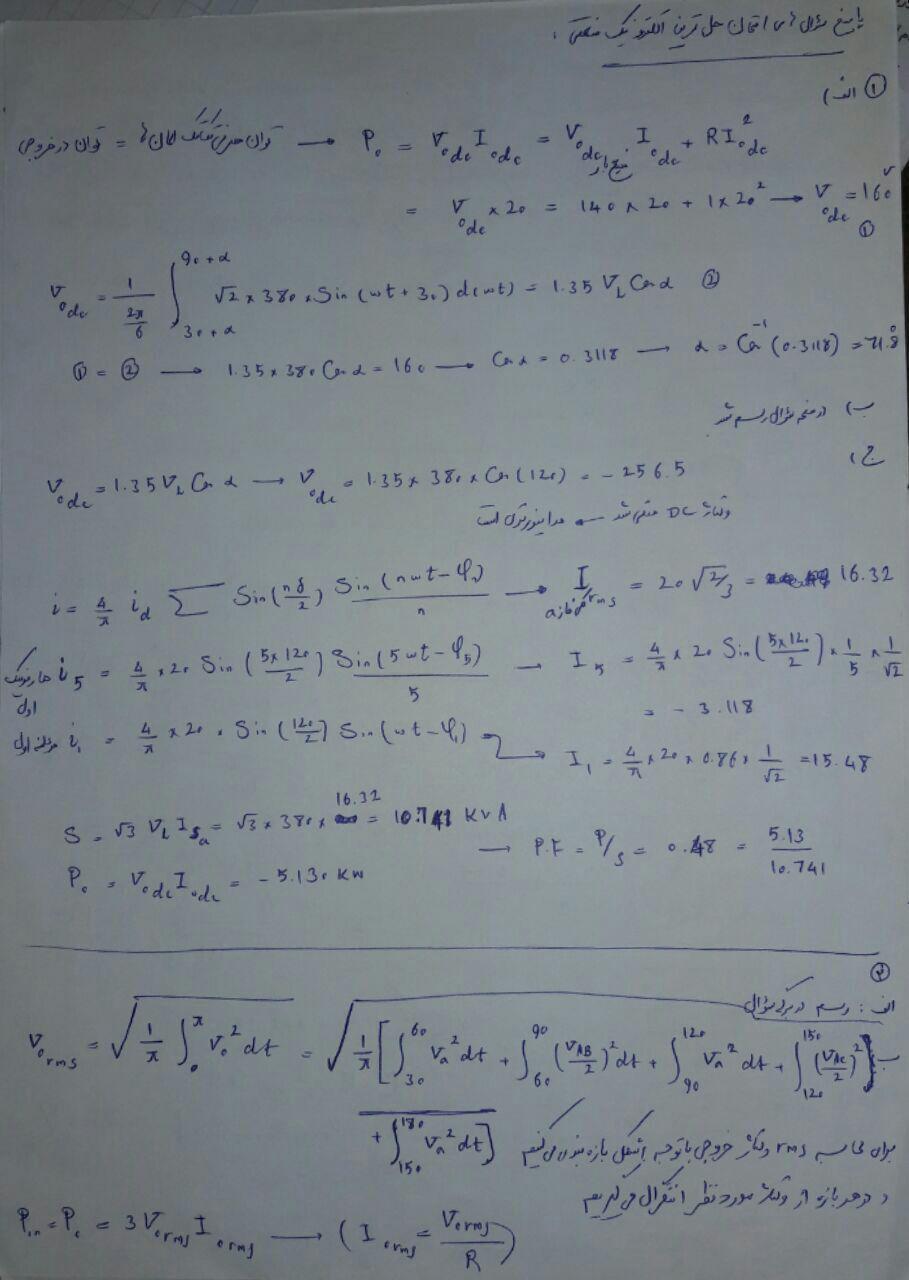 پاسخ سؤال های امتحان حل تمرین الکترونیک صنعتی :
① الف)
توان در خروجی = توان → P₀ = V_odc I_odc = V_odc منبع بار I_odc + R I²_odc
= V_odc × 20 = 140 × 20 + 1 × 20² → V_odc = 160 v ①
V_odc = 1/(2π/6) ∫_{30+α}^{90+α} √2 × 380 × Sin(ωt + 30) d(ωt) = 1.35 V_L Cos α ②
① = ② → 1.35 × 380 Cos α = 160 → Cos α = 0.3118 → α = Cos⁻¹(0.3118) = 71.8°
ب) در صفحه سؤال رسم شد
ج)
V_odc = 1.35 V_L Cos α → V_odc = 1.35 × 380 × Cos(120) = - 256.5
ولتاژ DC منفی شد → مد اینورتری است
i = 4/π i_d Σ Sin(nδ/2) Sin(nωt - φn)/n → I rms فاز a = 20 √2/3 = 16.32
هارمونیک اول i₅ = 4/π × 20 Sin(5×120/2) Sin(5ωt - φ₅)/5 → I₅ = 4/π × 20 Sin(5×120/2) × 1/5 × 1/√2
= - 3.118
مؤلفه اول i₁ = 4/π × 20 × Sin(120/2) Sin(ωt - φ₁) → I₁ = 4/π × 20 × 0.86 × 1/√2 = 15.48
S = √3 V_L I_sa = √3 × 380 × 16.32 = 10.741 KVA
P₀ = V_odc I_odc = - 5.130 KW → P.F = P/S = 0.48 = 5.13/10.741
②
الف : رسم در برگه سؤال
ب V_orms = √(1/π ∫_0^π V₀² dt) = √(1/π [∫_30^60 V_a² dt + ∫_60^90 (V_AB/2)² dt + ∫_90^120 V_a² dt + ∫_120^150 (V_AC/2)²
+ ∫_150^180 V_a² dt]
برای محاسبه rms ولتاژ خروجی با توجه به شکل بازه بندی می کنیم
و در هر بازه از ولتاژ مورد نظر انتگرال می گیریم
P_in = P₀ = 3 V_orms I_orms → (I_orms = V_orms/R)